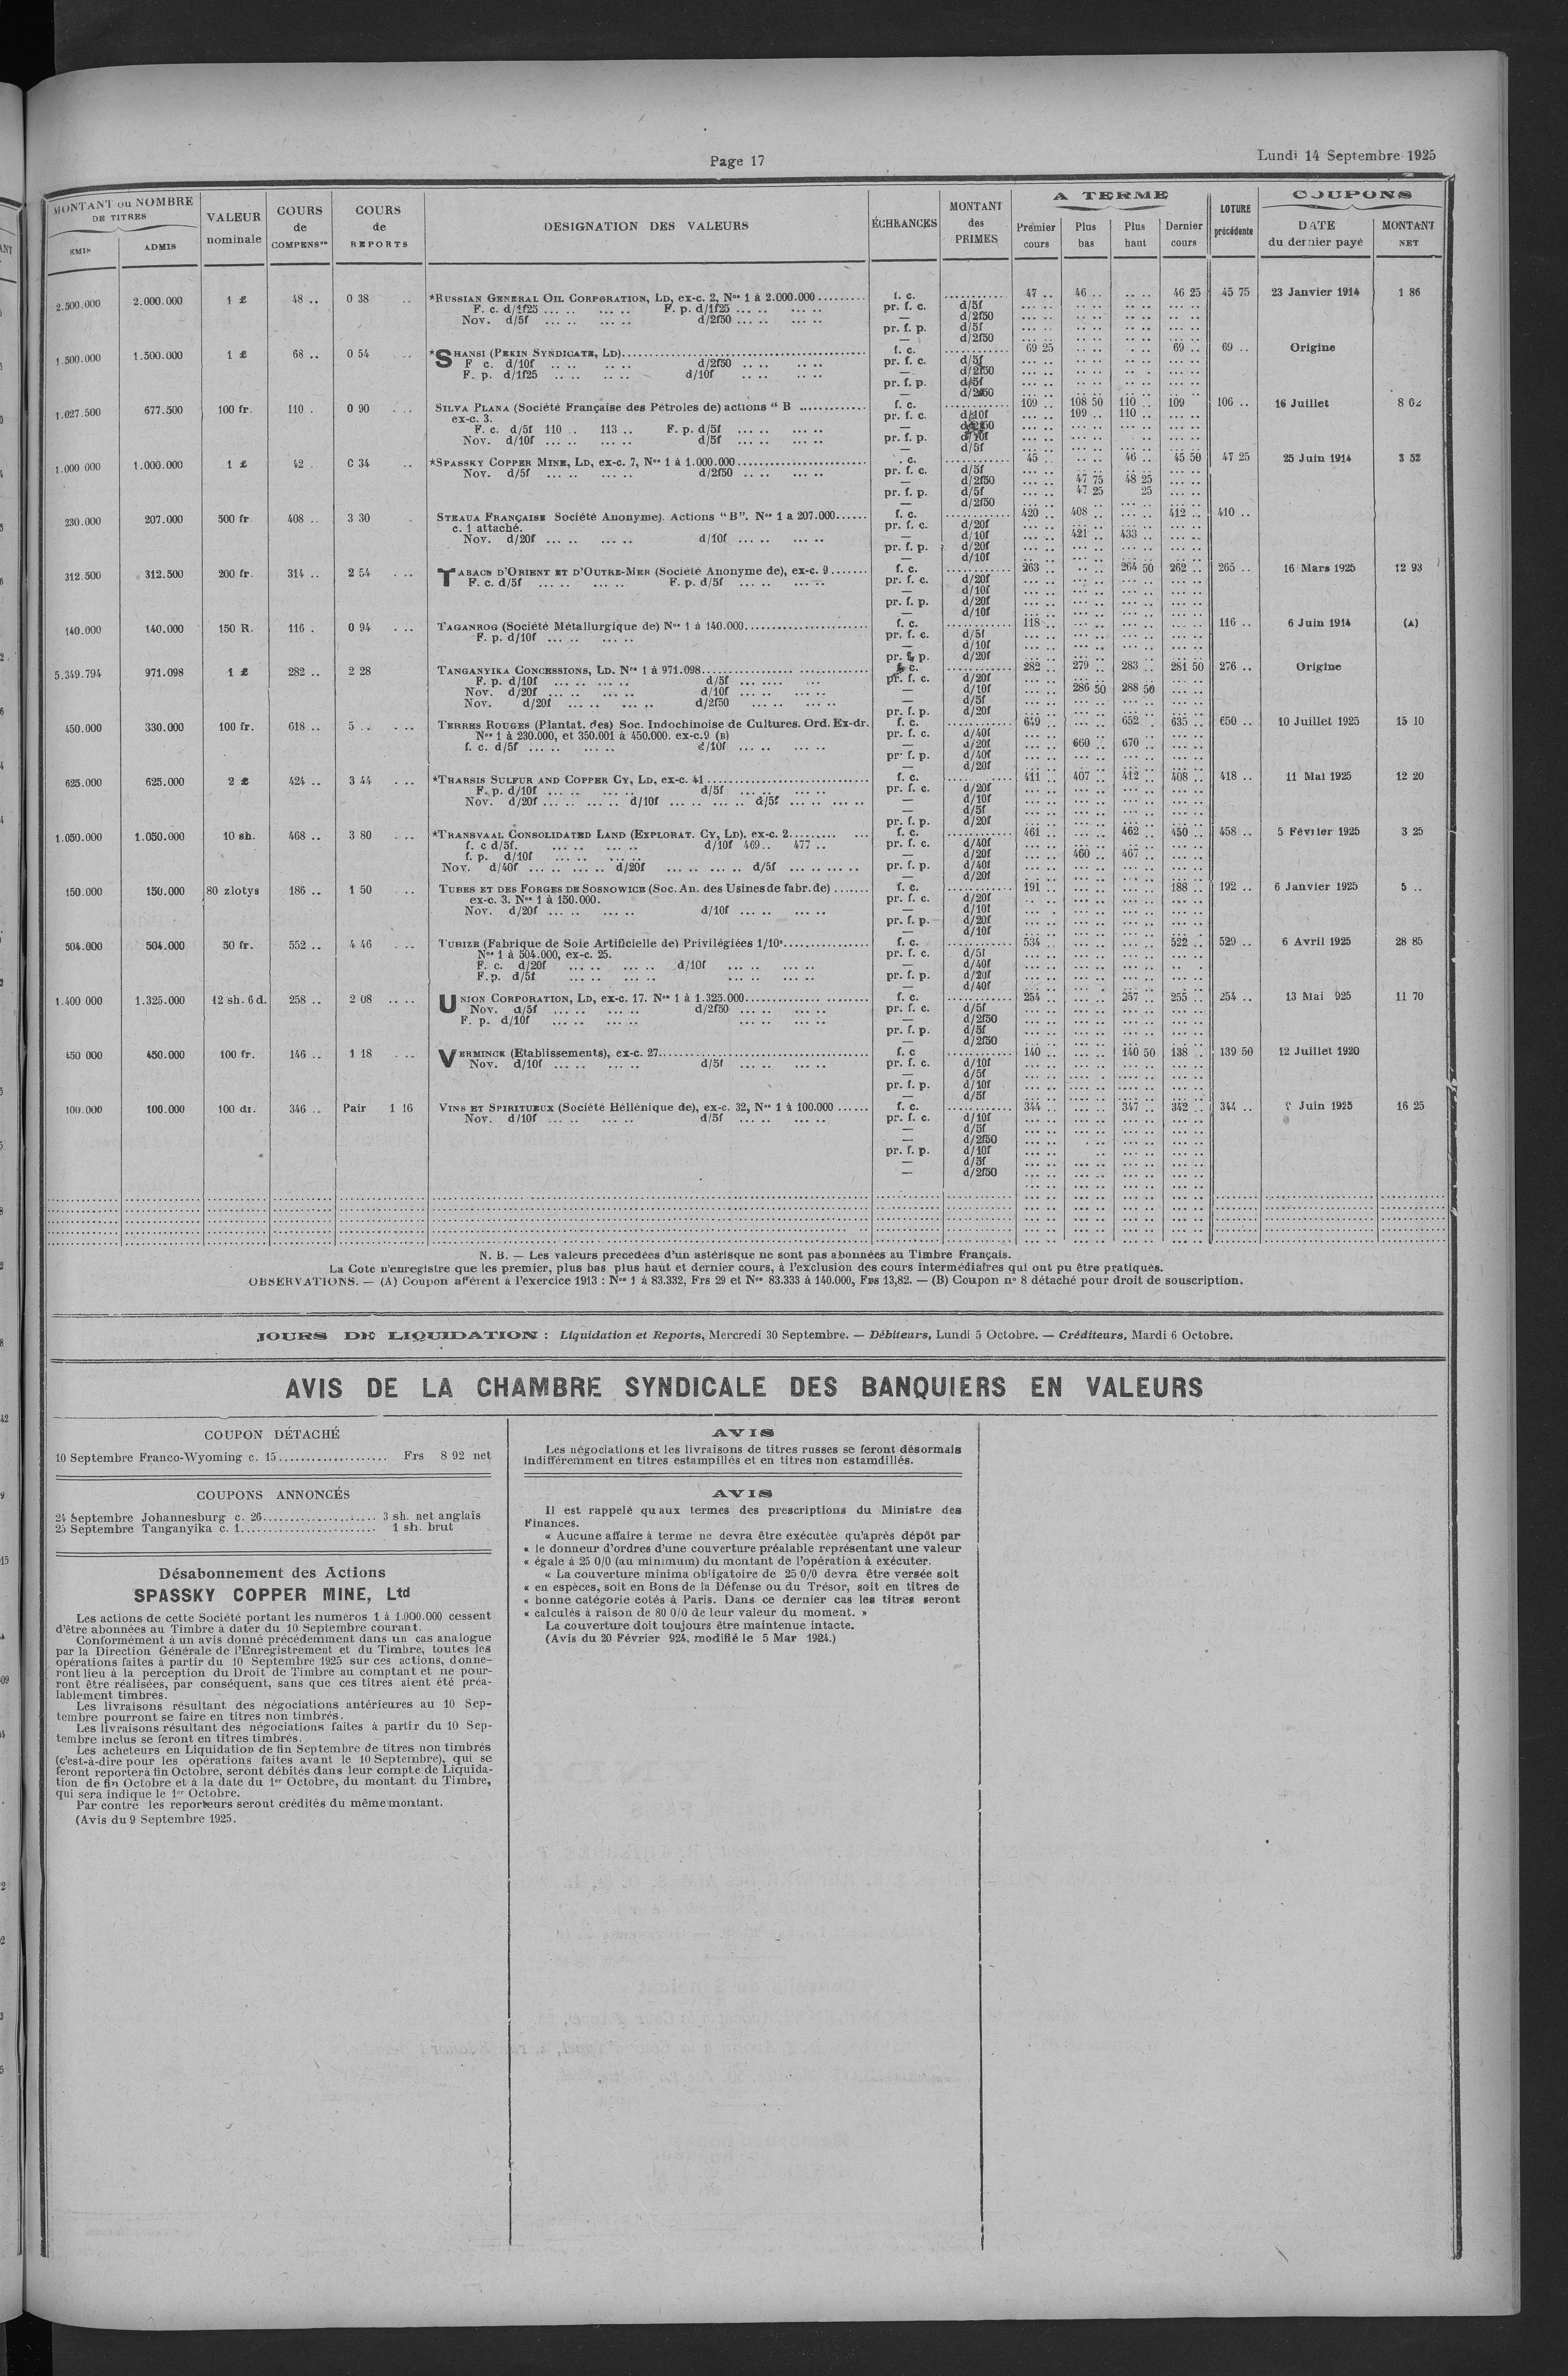 Page 17
Lundi 14 Septembre 1925
MONTANT ou NOMBRE DE TITRES
EMIS ADMIS
VALEUR nominale
COURS de COMPENS
COURS de REPORTS
DESIGNATION DES VALEURS
ÉCHEANCES
MONTANT des PRIMES
A TERME
Premier cours Plus bas Plus haut Dernier cours
LOTURE précédente
COUPONS
DATE du dernier payé MONTANT NET
2.500.000 2.000.000 1 £ 48 .. 0 38 .. *RUSSIAN GENERAL OIL CORPORATION, LD, ex-c. 2, Nos 1 à 2.000.000 f. c. 47 .. 46 .. .. .. 46 25 45 75 23 Janvier 1914 1 86
F. c. d/1f25 ... .. ... .. F. p. d/1f25 ... .. ... .. pr. f. c. d/5f
Nov. d/5f ... .. ... .. d/2f50 ... .. ... .. — d/2f50
pr. f. p. d/5f
— d/2f50
1.500.000 1.500.000 1 £ 68 .. 0 54 .. *SHANSI (PEKIN SYNDICATE, LD) f. c. 69 25 69 .. 69 .. Origine
F c. d/10f .. .. .. .. d/2f50 .. .. .. .. pr. f. c. d/5f
F. p. d/1f25 .. .. .. .. d/10f .. .. ... — d/2f50
pr. f. p. d/5f
— d/2f50
1.027.500 677.500 100 fr. 110 . 0 90 . .. SILVA PLANA (Société Française des Pétroles de) actions " B f. c. 109 .. 108 50 110 .. 109 106 .. 16 Juillet
ex-c. 3. pr. f. c. d/10f 109 .. 110 ..
F. c. d/5f 110 .. 113 .. F. p. d/5f ... .. ... ..
Nov. d/10f ... .. ... .. d/5f ... .. ... .. pr. f. p. d/10f
— d/5f
1.000.000 1.000.000 1 £ 42 . 0 34 .. *SPASSKY COPPER MINE, LD, ex-c. 7, Nos 1 à 1.000.000 . c. 45 .. 46 .. 45 50 47 25 25 Juin 1914 3 52
Nov. d/5f ... .. ... .. d/2f50 .. .. ... .. pr. f. c. d/5f
— d/2f50 47 75 48 25
pr. f. p. d/5f 47 25 25
— d/2f50
230.000 207.000 500 fr 408 .. 3 30 . STEAUA FRANÇAISE Société Anonyme). Actions "B". Nos 1 a 207.000 f. c. 420 .. 408 .. 412 .. 410 ..
c. 1 attaché. pr. f. c. d/20f
Nov. d/20f ... .. ... .. d/10f ... .. ... .. — d/10f 421 .. 433 ..
pr. f. p. d/20f
— d/10f
312.500 312.500 200 fr. 314 .. 2 54 . .. TABACS D'ORIENT ET D'OUTRE-MER (Société Anonyme de), ex-c. 9 f. c. 263 .. 264 50 262 .. 265 .. 16 Mars 1925 12 93
F. c. d/5f ... .. ... .. F. p. d/5f ... .. ... .. pr. f. c. d/20f
— d/10f
pr. f. p. d/20f
— d/10f
140.000 140.000 150 R. 116 . 0 94 . .. TAGANROG (Société Métallurgique de) Nos 1 à 140.000 f. c. 118 .. 116 .. 6 Juin 1914 (A)
F. p. d/10f ... .. ... .. pr. f. c. d/5f
— d/10f
pr. f. p. d/20f
5.349.794 971.098 1 £ 282 .. 2 28 TANGANYIKA CONCESSIONS, LD. Nos 1 à 971.098 f. c. 282 .. 279 .. 283 .. 281 50 276 .. Origine
F. p. d/10f ... .. ... .. d/5f ... .. .. pr. f. c. d/20f
Nov. d/20f ... .. ... .. d/10f ... .. ... .. — d/10f 286 50 288 50
Nov. d/20f ... .. ... .. d/2f50 ... .. ... .. — d/5f
pr. f. p. d/20f
450.000 330.000 100 fr. 618 .. 5 .. . .. TERRES ROUGES (Plantat. des) Soc. Indochinoise de Cultures. Ord. Ex-dr. f. c. 649 .. 652 .. 635 .. 650 .. 10 Juillet 1925 15 10
Nos 1 à 230.000, et 350.001 à 450.000. ex-c.9 (B) pr. f. c. d/40f
f. c. d/5f ... .. ... .. d/10f ... .. ... .. — d/20f 660 .. 670 ..
pr. f. p. d/40f
— d/20f
625.000 625.000 2 £ 424 .. 3 44 . .. *THARSIS SULFUR AND COPPER CY, LD, ex-c. 41 f. c. 411 .. 407 .. 412 .. 408 .. 418 .. 11 Mai 1925 12 20
F. p. d/10f ... .. ... .. d/5f ... .. ... .. pr. f. c. d/20f
Nov. d/20f ... .. ... .. d/10f ... .. ... .. d/5f ... .. ... .. — d/10f
— d/5f
pr. f. p. d/20f
1.050.000 1.050.000 10 sh. 468 .. 3 80 . .. *TRANSVAAL CONSOLIDATED LAND (EXPLORAT. CY, LD). ex-c. 2 f. c. 461 .. 462 .. 450 .. 458 .. 5 Février 1925 3 25
f. c d/5f. ... .. ... .. d/10f 469 .. 477 .. pr. f. c. d/40f
f. p. d/10f ... .. ... .. — d/20f 460 .. 467 ..
Nov. d/40f ... .. ... .. d/20f ... .. ... .. d/5f ... .. ... .. pr. f. p. d/40f
— d/20f
150.000 150.000 80 zlotys 186 .. 1 50 .. TUBES ET DES FORGES DE SOSNOWICE (Soc. An. des Usines de fabr. de) f. c. 191 .. 188 .. 192 .. 6 Janvier 1925 5 ..
ex-c. 3. Nos 1 à 150.000. pr. f. c. d/20f
Nov. d/20f ... .. ... .. d/10f ... .. ... .. — d/10f
pr. f. p. d/20f
— d/10f
504.000 504.000 50 fr. 552 .. 4 46 . .. TUBIZE (Fabrique de Soie Artificielle de) Privilégiées 1/10e f. c. 534 .. 522 .. 529 .. 6 Avril 1925 28 85
Nos 1 à 504.000, ex-c. 25. pr. f. c. d/5f
F. c. d/20f ... .. ... .. d/10f ... .. ... .. — d/40f
F.p. d/5f ... .. ... .. ... .. ... .. pr. f. p. d/20f
— d/40f
1.400 000 1.325.000 12 sh. 6 d. 258 .. 2 08 .. .. UNION CORPORATION, LD, ex-c. 17. Nos 1 à 1.325.000 f. c. 254 .. 257 .. 255 .. 254 .. 13 Mai 925 11 70
Nov. d/5f ... .. ... .. d/2f50 ... .. ... .. pr. f. c. d/5f
F. p. d/10f ... .. ... .. ... .. ... .. — d/2f50
pr. f. p. d/5f
— d/2f50
450 000 450.000 100 fr. 146 .. 1 18 . .. VERMINCK (Etablissements), ex-c. 27 f. c 140 .. 140 50 138 .. 139 50 12 Juillet 1920
Nov. d/10f ... .. ... .. d/5f ... .. ... .. pr. f. c. d/10f
— d/5f
pr. f. p. d/10f
— d/5f
100.000 100.000 100 dr. 346 .. Pair 1 16 VINS ET SPIRITUEUX (Société Hellénique de), ex-c. 32, Nos 1 à 100.000 f. c. 344 .. 347 .. 342 .. 344 .. Juin 1925 16 25
Nov. d/10f ... .. ... .. d/5f ... .. ... .. pr. f. c. d/10f
— d/5f
— d/2f50
pr. f. p. d/10f
— d/5f
— d/2f50
N. B. — Les valeurs precedées d'un astérisque ne sont pas abonnées au Timbre Français.
La Cote n'enregistre que les premier, plus bas plus haut et dernier cours, à l'exclusion des cours intermédiaires qui ont pu être pratiqués.
OBSERVATIONS. — (A) Coupon afférent à l'exercice 1913 : Nos 1 à 83.332, Frs 29 et Nos 83.333 à 140.000, Frs 13,82. — (B) Coupon n° 8 détaché pour droit de souscription.
JOURS DE LIQUIDATION : Liquidation et Reports, Mercredi 30 Septembre. — Débiteurs, Lundi 5 Octobre. — Créditeurs, Mardi 6 Octobre.
AVIS DE LA CHAMBRE SYNDICALE DES BANQUIERS EN VALEURS
COUPON DÉTACHÉ
10 Septembre Franco-Wyoming c. 15 Frs 8 92 net
COUPONS ANNONCÉS
24 Septembre Johannesburg c. 26 3 sh. net anglais
25 Septembre Tanganyika c. 1 1 sh. brut
Désabonnement des Actions
SPASSKY COPPER MINE, Ltd
Les actions de cette Société portant les numéros 1 à 1.000.000 cessent
d'être abonnées au Timbre à dater du 10 Septembre courant.
Conformément à un avis donné précédemment dans un cas analogue
par la Direction Générale de l'Enregistrement et du Timbre, toutes les
opérations faites à partir du 10 Septembre 1925 sur ces actions, donne-
ront lieu à la perception du Droit de Timbre au comptant et ne pour-
ront être réalisées, par conséquent, sans que ces titres aient été préa-
lablement timbrés.
Les livraisons résultant des négociations antérieures au 10 Sep-
tembre pourront se faire en titres non timbrés.
Les livraisons résultant des négociations faites à partir du 10 Sep-
tembre inclus se feront en titres timbrés.
Les acheteurs en Liquidation de fin Septembre de titres non timbrés
(c'est-à-dire pour les opérations faites avant le 10 Septembre), qui se
feront reporter à fin Octobre, seront débités dans leur compte de Liquida-
tion de fin Octobre et à la date du 1er Octobre, du montant du Timbre,
qui sera indique le 1er Octobre.
Par contre les reporteurs seront crédités du même montant.
(Avis du 9 Septembre 1925.
AVIS
Les négociations et les livraisons de titres russes se feront désormais
indifféremment en titres estampillés et en titres non estamdillés.
AVIS
Il est rappelé qu aux termes des prescriptions du Ministre des
Finances.
« Aucune affaire à terme ne devra être exécutée qu'après dépôt par
« le donneur d'ordres d'une couverture préalable représentant une valeur
« égale à 25 0/0 (au minimum) du montant de l'opération à exécuter.
« La couverture minima obligatoire de 25 0/0 devra être versée soit
« en espèces, soit en Bons de la Défense ou du Trésor, soit en titres de
« bonne catégorie cotés à Paris. Dans ce dernier cas les titres seront
« calculés à raison de 80 0/0 de leur valeur du moment. »
La couverture doit toujours être maintenue intacte.
(Avis du 20 Février 924, modifié le 5 Mar 1924.)